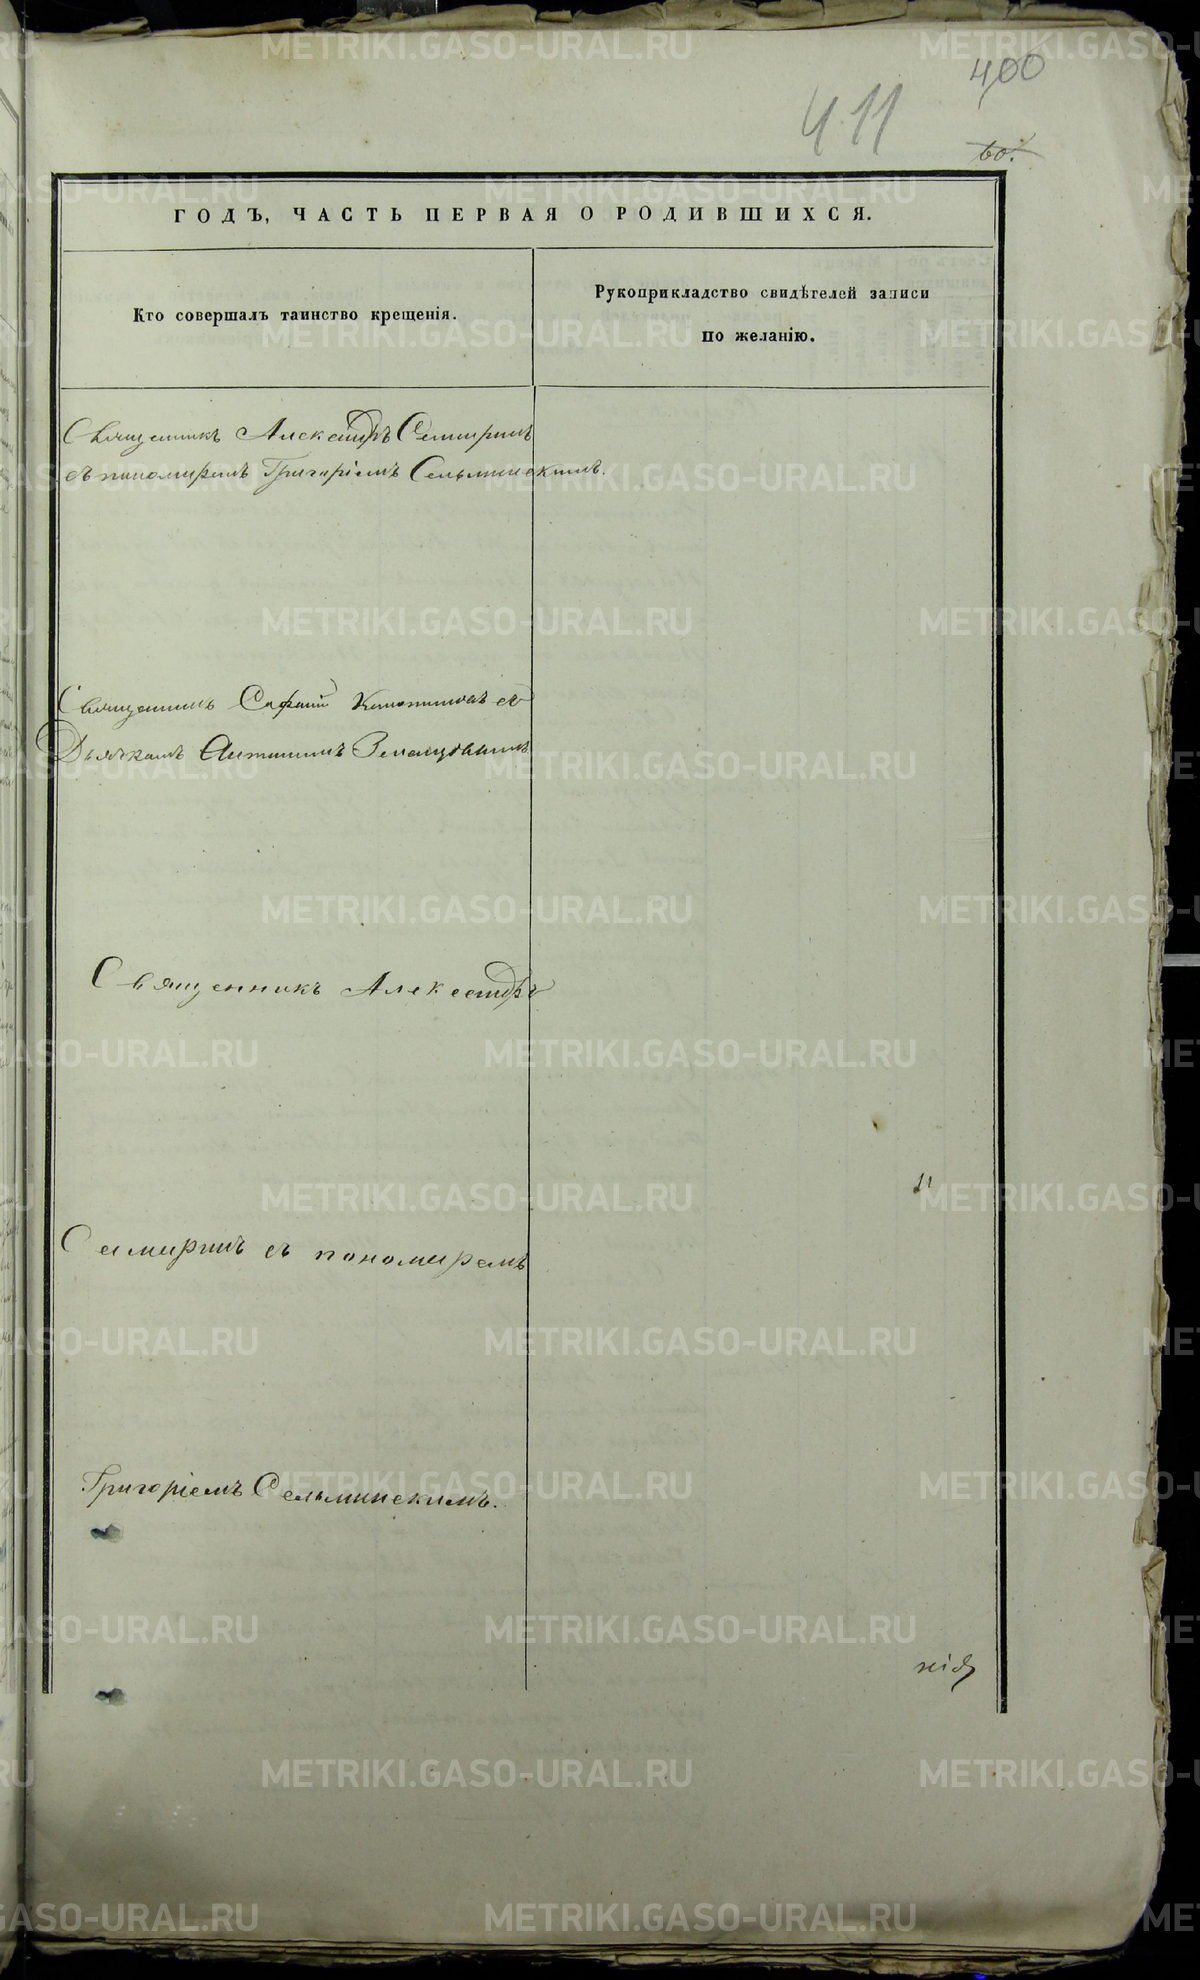 400
411
60.
ГОДЪ, ЧАСТЬ ПЕРВАЯ О РОДИВШИХСЯ.
Кто совершалъ таинство крещенія.
Рукоприкладство свидѣтелей записи
по желанію.
Священникъ Александръ Семиринъ
съ пономаремъ Григоріемъ Сельминскимъ.
Священникъ
Дьячкомъ
Священникъ Александръ
Семиринъ съ пономаремъ
Григоріемъ Сельминскимъ.
METRIKI.GASO-URAL.RU